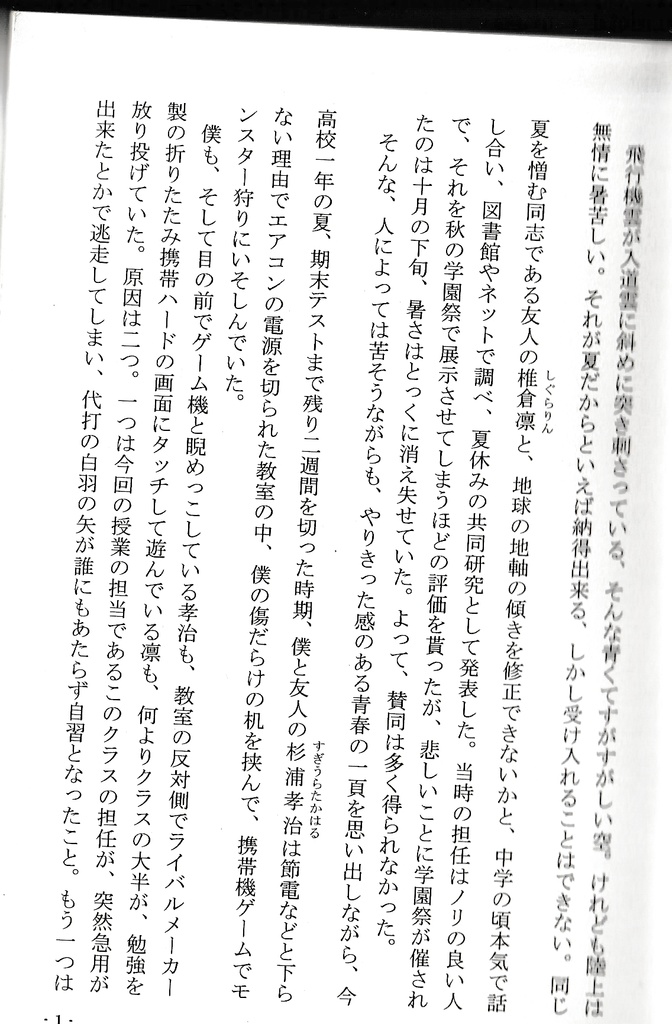 飛行機雲が入道雲に斜めに突き刺さっている、そんな青くてすがすがしい空。けれども陸上は
無情に暑苦しい。それが夏だからといえば納得出来る、しかし受け入れることはできない。同じ
夏を憎む同志である友人の椎倉凛と、地球の地軸の傾きを修正できないかと、中学の頃本気で話
しぐらりん
し合い、図書館やネットで調べ、夏休みの共同研究として発表した。当時の担任はノリの良い人
で、それを秋の学園祭で展示させてしまうほどの評価を貰ったが、悲しいことに学園祭が催され
たのは十月の下旬、暑さはとっくに消え失せていた。よって、賛同は多く得られなかった。
そんな、人によっては苦そうながらも、やりきった感のある青春の一頁を思い出しながら、今
高校一年の夏、期末テストまで残り二週間を切った時期、僕と友人の杉浦孝治は節電などと下ら
すぎうらたかはる
ない理由でエアコンの電源を切られた教室の中、僕の傷だらけの机を挟んで、携帯機ゲームでモ
ンスター狩りにいそしんでいた。
僕も、そして目の前でゲーム機と睨めっこしている孝治も、教室の反対側でライバルメーカー
製の折りたたみ携帯ハードの画面にタッチして遊んでいる凛も、何よりクラスの大半が、勉強を
放り投げていた。原因は二つ。一つは今回の授業の担当であるこのクラスの担任が、突然急用が
出来たとかで逃走してしまい、代打の白羽の矢が誰にもあたらず自習となったこと。もう一つは
- 1 -